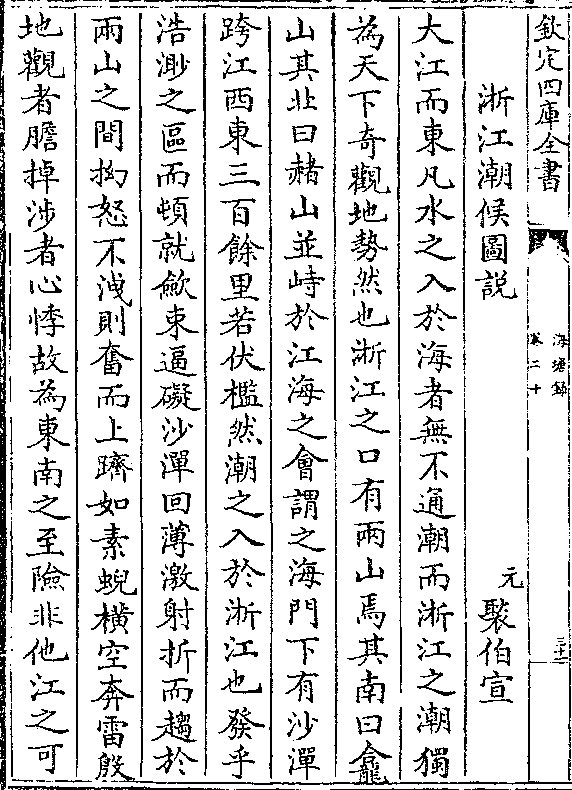 欽定四庫全書
海塘錄
卷二十
浙江潮候圖說
元
裴伯宣
大江而東凡水之入於海者無不通潮而浙江之潮獨
為天下奇觀地勢然也浙江之口有兩山焉其南曰龕
山其北曰赭山並峙於江海之會謂之海門下有沙潬
跨江西東三百餘里若伏檻然潮之入於浙江也發乎
浩渺之區而頓就歛束逼礙沙潬回薄激射折而趨於
兩山之間拗怒不洩則奮而上躋如素蜺橫空奔雷殷
地觀者膽掉涉者心悸故為東南之至險非他江之可